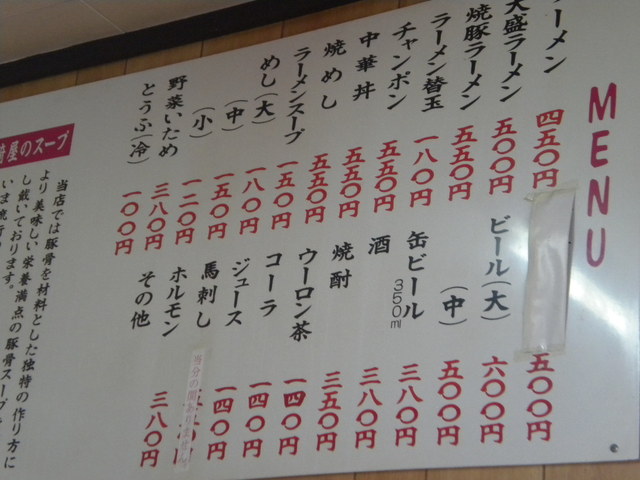 MENU
ーメン 四五〇円
大盛ラーメン 五〇〇円
焼豚ラーメン 五五〇円
ラーメン替玉 一八〇円
チャンポン 五五〇円
中華丼 五五〇円
焼めし 五五〇円
ラーメンスープ 一五〇円
めし(大) 一八〇円
(中) 一五〇円
(小) 一二〇円
野菜いため 三八〇円
とうふ(冷) 一〇〇円
五〇〇円
ビール(大) 六〇〇円
(中) 五〇〇円
缶ビール350ml 三八〇円
酒 三八〇円
焼酎 三五〇円
ウーロン茶 一四〇円
コーラ 一四〇円
ジュース 一四〇円
馬刺し 当分の間ありません
ホルモン 三八〇円
その他
屋のスープ
当店では豚骨を材料とした独特の作り方に
より美味しい栄養満点の豚骨スープ
し戴いております。